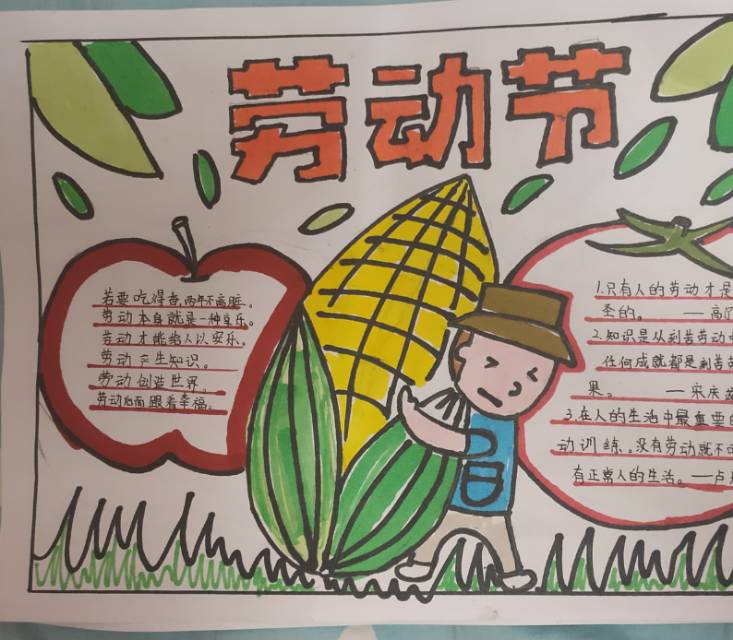 劳动节
若要吃得香,两午不离
劳动本身就是一种享乐。
劳动才能给人以安乐。
劳动产生知识。
劳动创造世界。
劳动后面跟着幸福。
1.只有人的劳动才是
圣的。 ——高
2.知识是从刻苦劳动中
任何成就都是刻苦劳
果。 —宋庆
3.在人的生活中最重要的
动训练。没有劳动就不
有正常人的生活。—卢